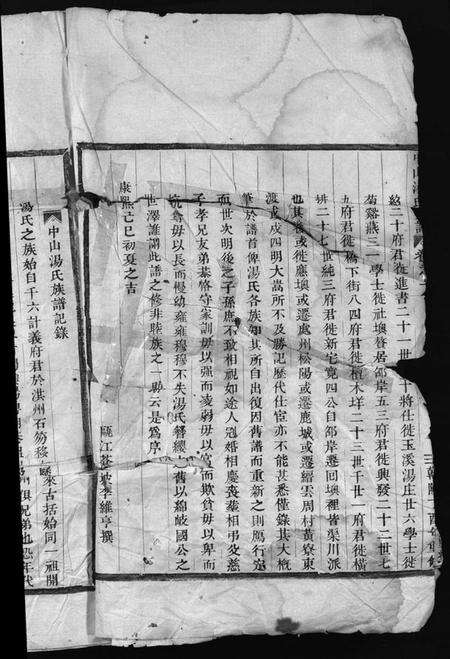 㝎二十府君徙進書二十一世 十將仕徙玉溪湯庄廿六學士徙
菊谿燕三學士徙社墺督居郃岸五三府君徙興發二十二世七
九府君徙橋下街八四府君徙檀木垟二十三世千廿一府君徙橫
垟二十七世統三府君徙新宅寬四公自郃岸遷回墺裡皆渠川派
也其餘或徙應墺或遷處州松陽或遷鹿城或遷縉雲周村黃寮東
渡或戍四明大嵩所不及勝記歷代仕宦亦不能甚悉僅錄其大概
筆於譜首俾湯氏各族知其所自出復因舊譜而重新之則鴈行定
而世次明後之子孫庶不致相視如途人冠婚相慶喪葬相弔父慈
子孝兄友弟恭恪守家訓毋以強而凌弱毋以富而欺貧毋以卑而
抗尊毋以長而慢幼雍雍穆穆不失湯氏簪纓之舊以綿岐國公之
世澤誰謂此譜之修非睦族之一助云是為序
康熙己巳初夏之吉
甌江 李維亨撰
中山湯氏族譜記錄
湯氏之族始自千六計義府君於淇州石笏移
歷古括始同一祖開
俱兄弟也恐年代